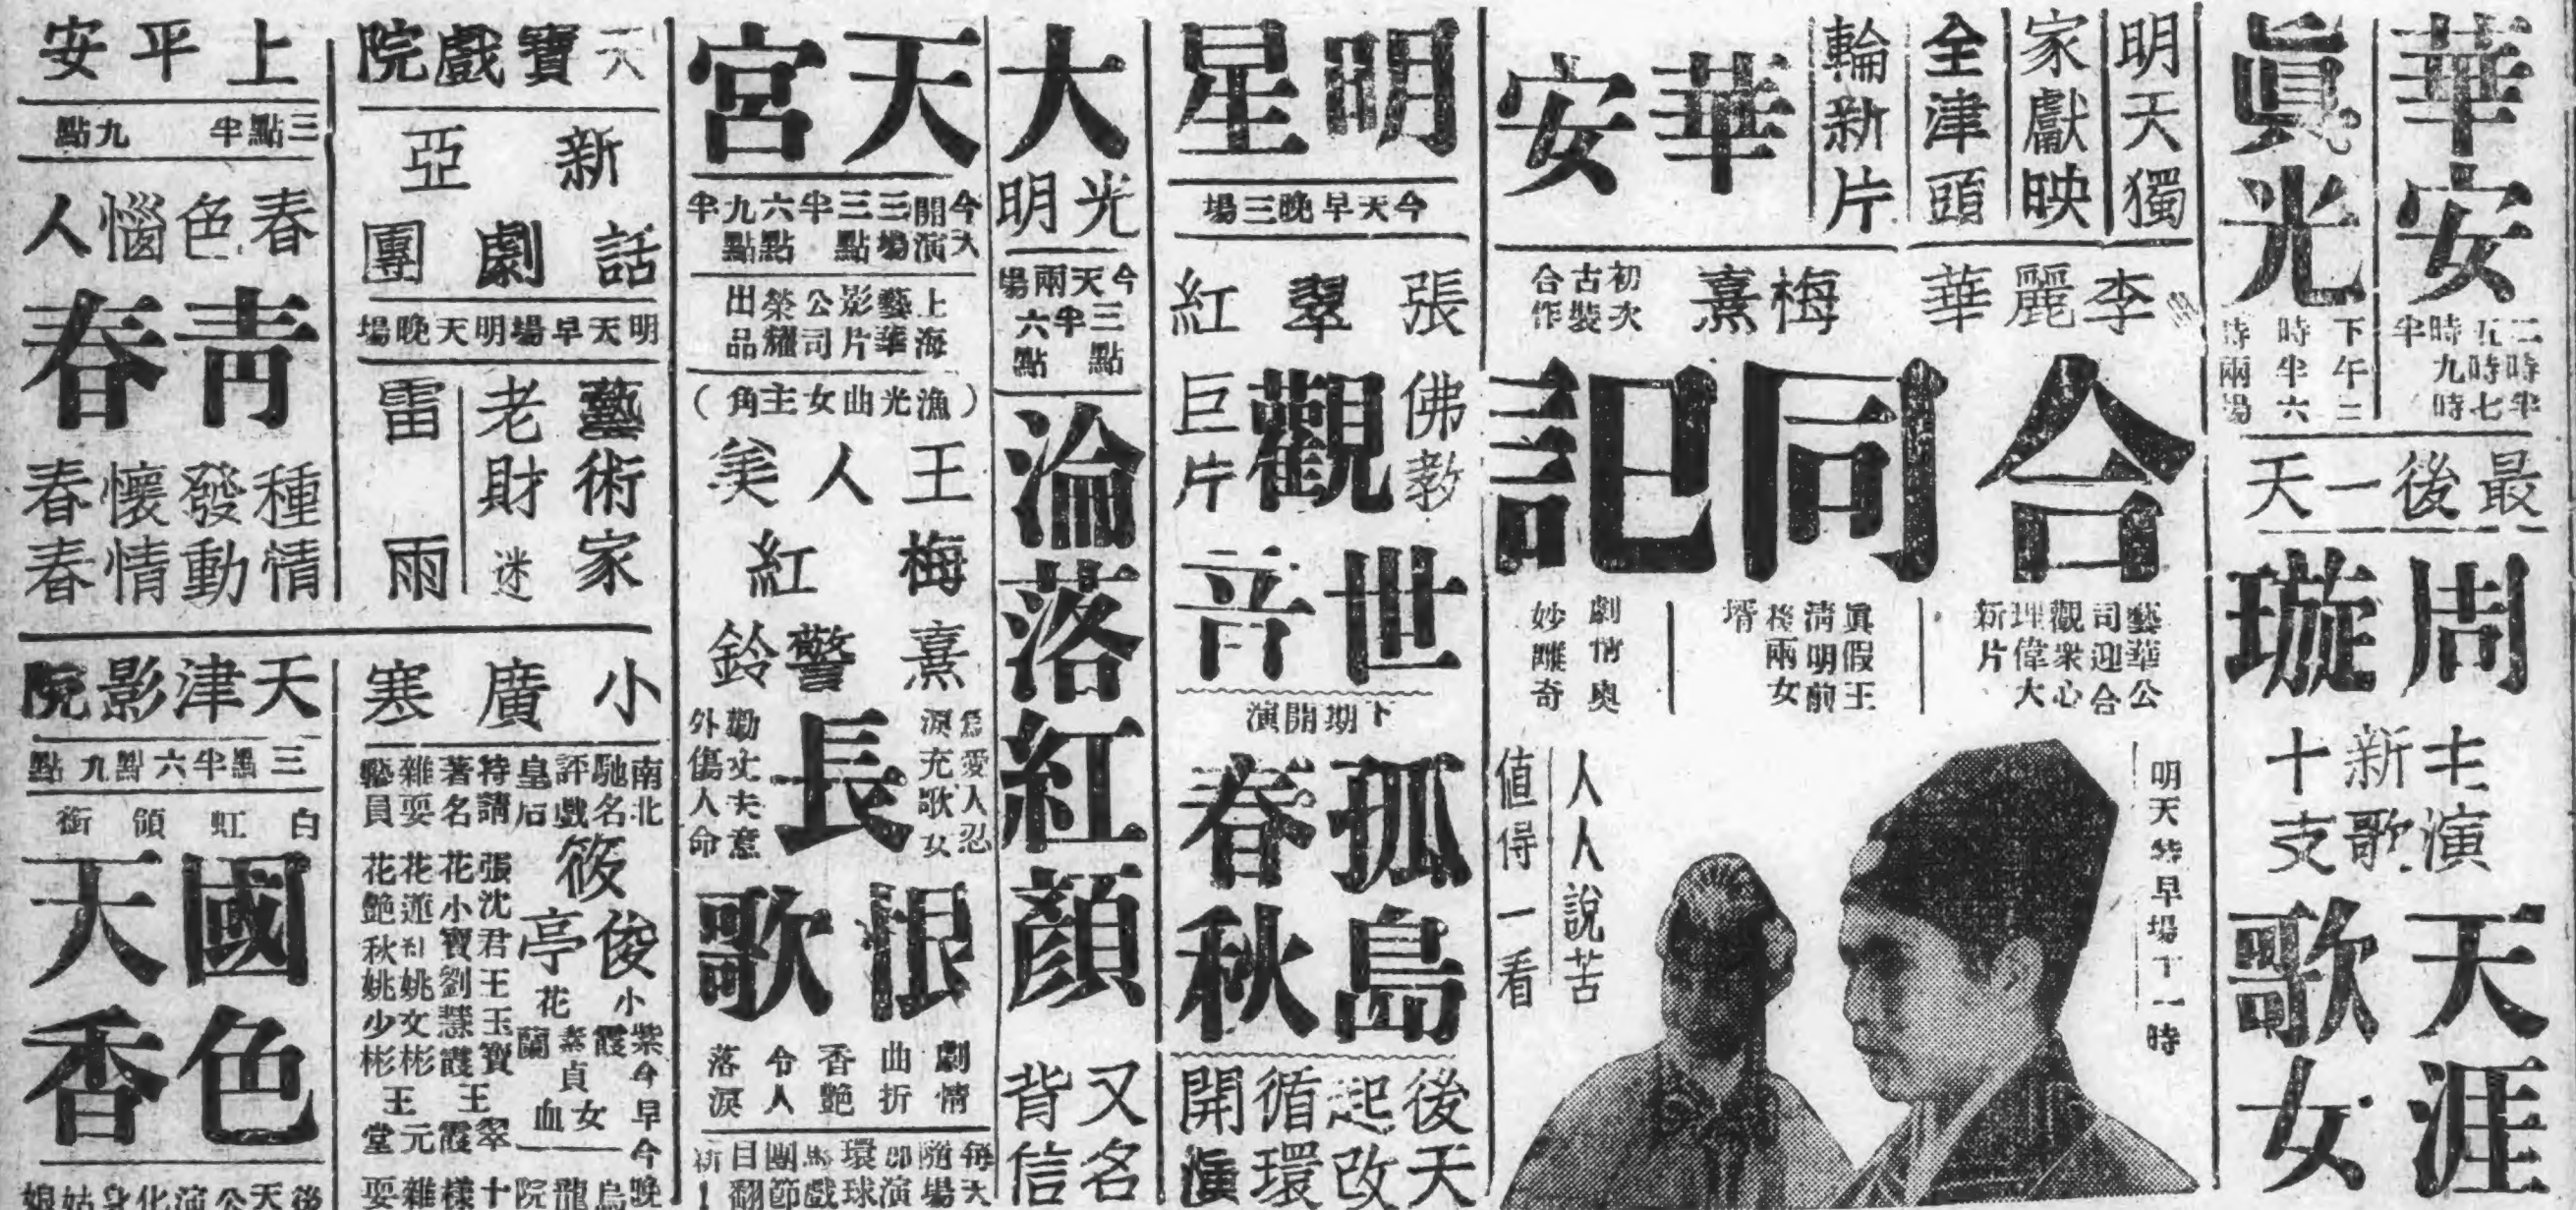 華安
二時半
五時七
時九時
半
眞光
下午三
時半六
時兩場
最後一天
周璇
主演
新歌
十支
天涯
歌女
明天獨
家獻映
全津頭
輪新片
華安
李麗華
梅熹
初次
古裝
合作
合同記
藝華公
司迎合
觀眾心
理偉大
新片
眞假王
清明前
後兩女
壻
劇情奧
妙離奇
明天特早場十一時
人人說苦
值得一看
明星
今天早晚三場
張翠紅
佛教
觀世音
巨片
下期開演
孤島
春秋
後天
起改
循環
開演
大光明
今天兩場
三點半六點
淪落紅顏
又名
背信
天宮
今天
開演
三場
三點
半
六點
九點
半
上海
藝華
影片
公司
榮耀
出品
（漁光曲女主角）
王人美
梅熹
紅警鈴
長恨歌
爲愛人忍
淚充歌女
勸丈夫意
外傷人命
劇情
曲折
香艷
令人
落淚
每天
隨場
即演
環球
馬戲
團節
目翻
新！
天寶戲院
新亞
話劇團
明天早場明天晚場
藝術家
老財迷
雷雨
小廣寒
南北
馳名
評戲
皇后
筱俊亭
特請
著名
雜耍
藝員
小紫霞
花素蘭
今早
貞女血
今晚
烏龍院
張沈君王玉寶王翠
花小寶劉慧霞王霞
花蓮紅姚文彬王元
花艷秋姚少彬王堂
十樣雜耍
上平安
三點半
九點
春色惱人
青春
種情
發動
懷情
春春
天津影院
三點半六點九點
白虹領銜
國色
天香
後天公演化身姑娘